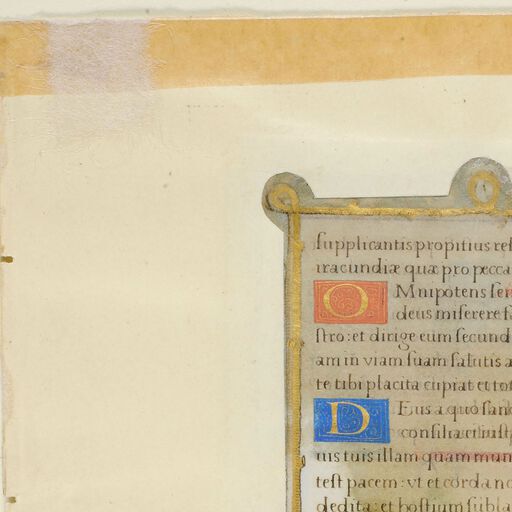 ſupplicantis propitius reſ
iracundiæ quæ pro pecca
OMnipotens ſem
deus miſerere fa
ſtro: et dirige eum ſecund
am in viam ſuam ſalutis a
te tibi placita cupiat et tot
DEus a quo ſanc
conſilia et iuſt
uis tuis illam quam mun
teſt pacem: vt et corda no
dedita: et hoſtium ſubla